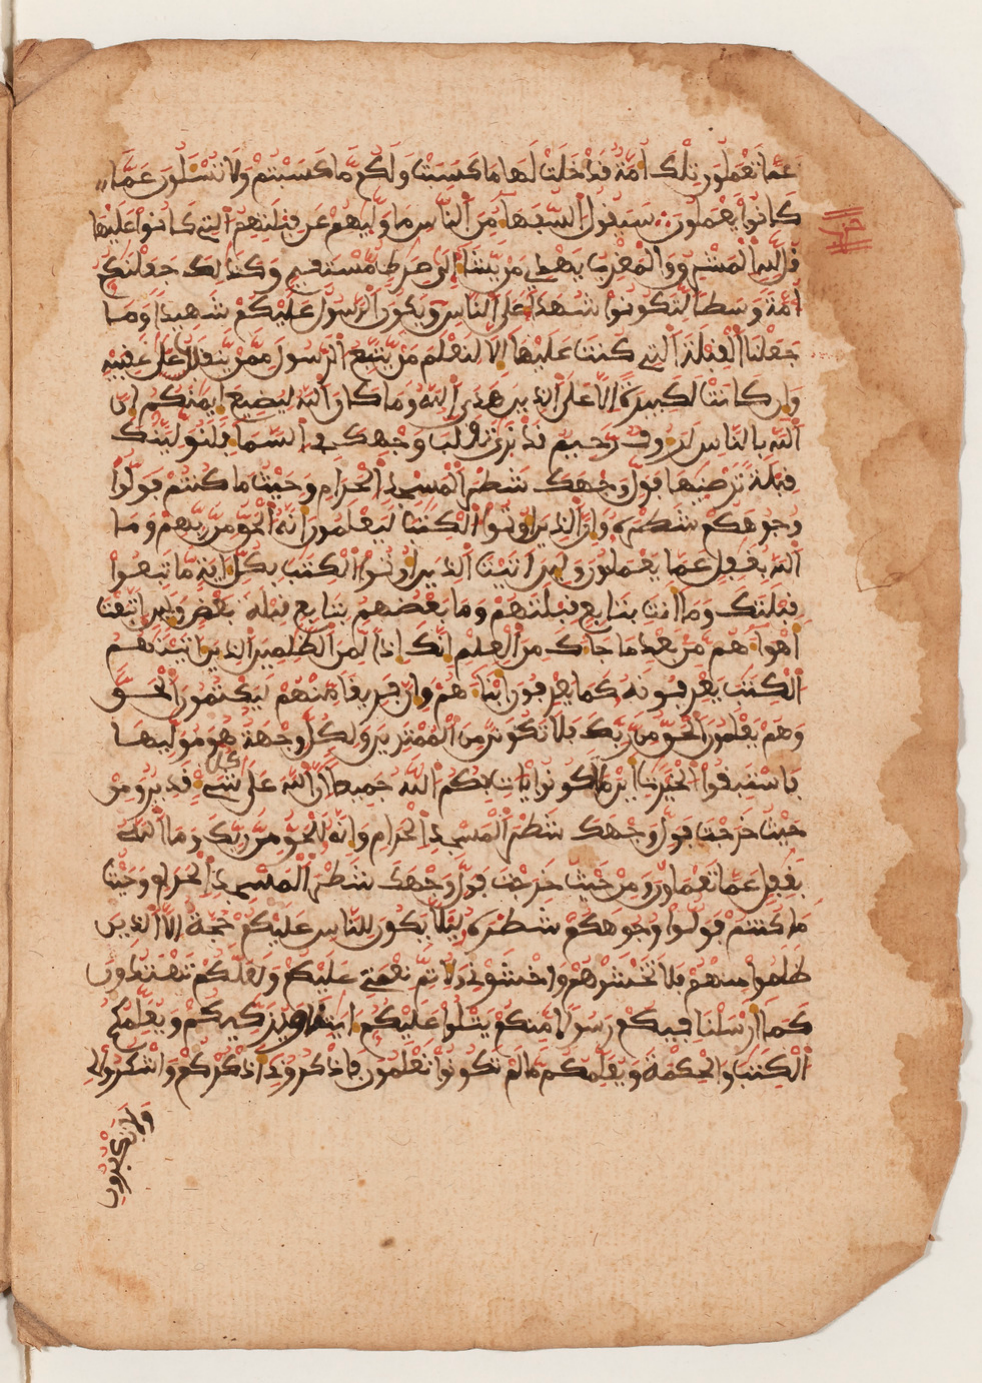 عَمَّا تَعْمَلُونَ تِلْكَ أُمَّةٌ قَدْ خَلَتْ لَهَا مَا كَسَبَتْ وَلَكُم مَّا كَسَبْتُمْ وَلَا تُسْـَٔلُونَ عَمَّا
كَانُوا يَعْمَلُونَ سَيَقُولُ السُّفَهَآءُ مِنَ النَّاسِ مَا وَلَّيٰهُمْ عَن قِبْلَتِهِمُ الَّتِي كَانُوا عَلَيْهَا
قُل لِّلهِ الْمَشْرِقُ وَالْمَغْرِبُ يَهْدِي مَنْ يَّشَآءُ إِلَىٰ صِرَٰطٍ مُّسْتَقِيمٍ وَكَذَٰلِكَ جَعَلْنَٰكُمُ
أُمَّةً وَسَطًا لِّتَكُونُوا شُهَدَآءَ عَلَى النَّاسِ وَيَكُونَ الرَّسُولُ عَلَيْكُمْ شَهِيدًا وَمَا
جَعَلْنَا الْقِبْلَةَ الَّتِي كُنتَ عَلَيْهَا إِلَّا لِنَعْلَمَ مَنْ يَّتَّبِعُ الرَّسُولَ مِمَّنْ يَّنقَلِبُ عَلَىٰ عَقِبَيْهِ
وَإِن كَانَتْ لَكَبِيرَةً إِلَّا عَلَى الَّذِينَ هَدَى اللَّهُ وَمَا كَانَ اللَّهُ لِيُضِيعَ إِيمَٰنَكُمْ إِنَّ
اللَّهَ بِالنَّاسِ لَرَءُوفٌ رَّحِيمٌ قَدْ نَرَىٰ تَقَلُّبَ وَجْهِكَ فِي السَّمَآءِ فَلَنُوَلِّيَنَّكَ
قِبْلَةً تَرْضَيٰهَا فَوَلِّ وَجْهَكَ شَطْرَ الْمَسْجِدِ الْحَرَامِ وَحَيْثُ مَا كُنتُمْ فَوَلُّوا
وُجُوهَكُمْ شَطْرَهُ وَإِنَّ الَّذِينَ أُوتُوا الْكِتَٰبَ لَيَعْلَمُونَ أَنَّهُ الْحَقُّ مِن رَّبِّهِمْ وَمَا
اللَّهُ بِغَٰفِلٍ عَمَّا يَعْمَلُونَ وَلَئِنْ أَتَيْتَ الَّذِينَ أُوتُوا الْكِتَٰبَ بِكُلِّ ءَايَةٍ مَّا تَبِعُوا
قِبْلَتَكَ وَمَآ أَنتَ بِتَابِعٍ قِبْلَتَهُمْ وَمَا بَعْضُهُم بِتَابِعٍ قِبْلَةَ بَعْضٍ وَلَئِنِ اتَّبَعْتَ
أَهْوَآءَهُم مِّنْ بَعْدِ مَا جَآءَكَ مِنَ الْعِلْمِ إِنَّكَ إِذًا لَّمِنَ الظَّٰلِمِينَ الَّذِينَ ءَاتَيْنَٰهُمُ
الْكِتَٰبَ يَعْرِفُونَهُ كَمَا يَعْرِفُونَ أَبْنَآءَهُمْ وَإِنَّ فَرِيقًا مِّنْهُمْ لَيَكْتُمُونَ الْحَقَّ
وَهُمْ يَعْلَمُونَ الْحَقُّ مِن رَّبِّكَ فَلَا تَكُونَنَّ مِنَ الْمُمْتَرِينَ وَلِكُلٍّ وِجْهَةٌ هُوَ مُوَلِّيهَا
فَاسْتَبِقُوا الْخَيْرَٰتِ أَيْنَ مَا تَكُونُوا يَأْتِ بِكُمُ اللَّهُ جَمِيعًا إِنَّ اللَّهَ عَلَىٰ كُلِّ شَيْءٍ قَدِيرٌ وَمِنْ
حَيْثُ خَرَجْتَ فَوَلِّ وَجْهَكَ شَطْرَ الْمَسْجِدِ الْحَرَامِ وَإِنَّهُ لَلْحَقُّ مِن رَّبِّكَ وَمَا اللَّهُ
بِغَٰفِلٍ عَمَّا تَعْمَلُونَ وَمِنْ حَيْثُ خَرَجْتَ فَوَلِّ وَجْهَكَ شَطْرَ الْمَسْجِدِ الْحَرَامِ وَحَيْثُ
مَا كُنتُمْ فَوَلُّوا وُجُوهَكُمْ شَطْرَهُ لِيَلَّا يَكُونَ لِلنَّاسِ عَلَيْكُمْ حُجَّةٌ إِلَّا الَّذِينَ
ظَلَمُوا مِنْهُمْ فَلَا تَخْشَوْهُمْ وَاخْشَوْنِي وَلِأُتِمَّ نِعْمَتِي عَلَيْكُمْ وَلَعَلَّكُمْ تَهْتَدُونَ
كَمَآ أَرْسَلْنَا فِيكُمْ رَسُولًا مِّنكُمْ يَتْلُوا عَلَيْكُمُ ءَايَٰتِنَا وَيُزَكِّيكُمْ وَيُعَلِّمُكُمُ
الْكِتَٰبَ وَالْحِكْمَةَ وَيُعَلِّمُكُم مَّا لَمْ تَكُونُوا تَعْلَمُونَ فَاذْكُرُونِي أَذْكُرْكُمْ وَاشْكُرُوا لِي
وَلَا تَكْفُرُونِ
حزب